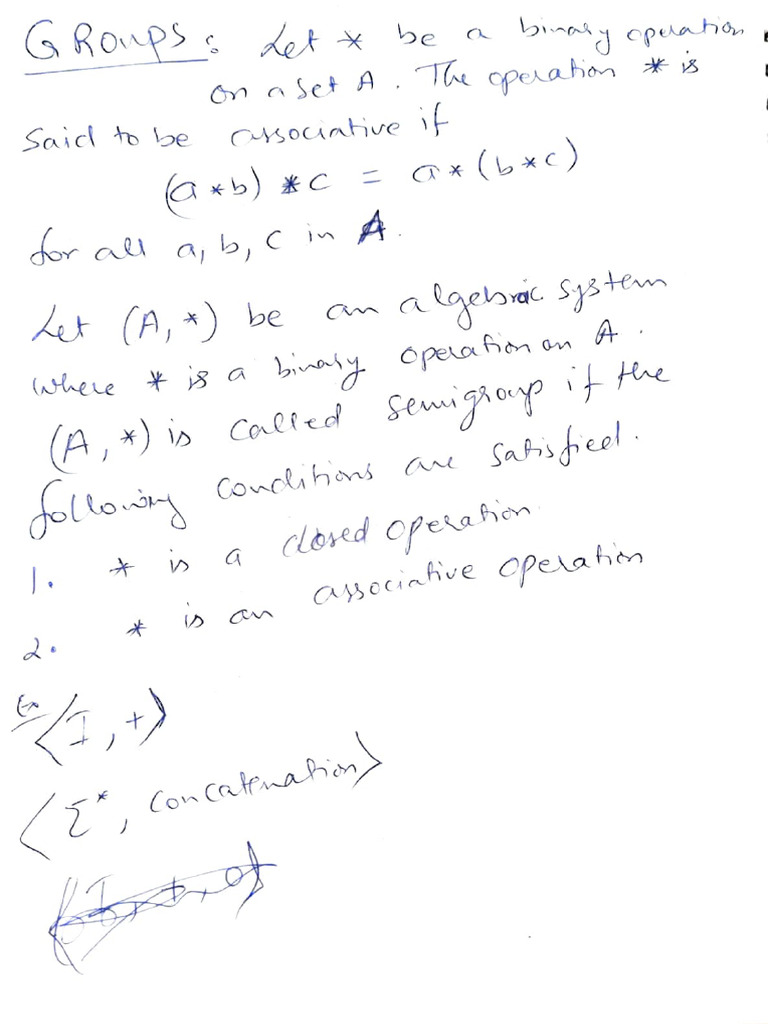 GROUPS: Let * be a binary operation
on a set A. The operation * is
said to be associative if
(a * b) * c = a * (b * c)
for all a, b, c in A.
Let (A, *) be an algebraic system
where * is a binary operation on A.
(A, *) is called semigroup if the
following conditions are satisfied.
1. * is a closed operation
2. * is an associative operation
Ex
⟨I, +⟩
⟨Σ*, concatenation⟩